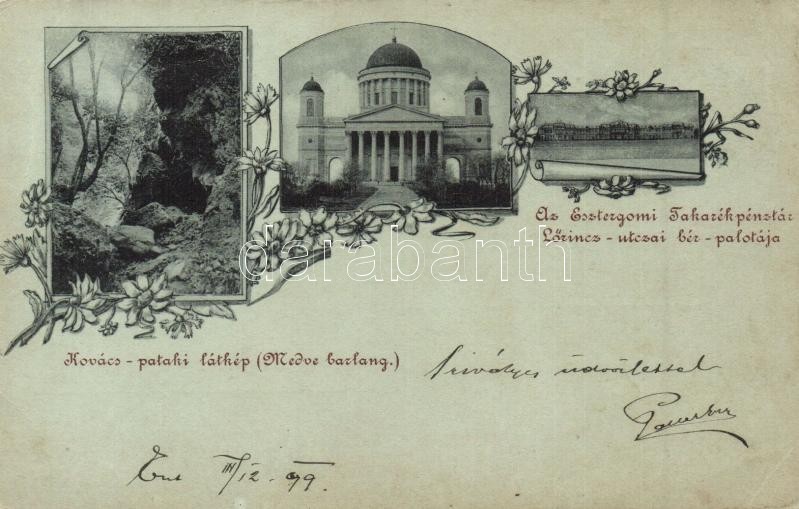 Az Esztergomi Takarékpénztár
Lőrincz - utczai bér - palotája
darabanth
Kovács - pataki látkép (Medve barlang.)
Szivélyes üdvözlettel
III/12 99.